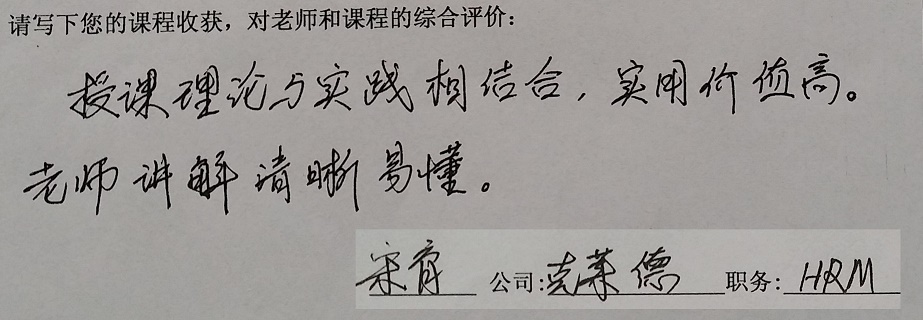 请写下您的课程收获，对老师和课程的综合评价：
授课理论与实践相结合，实用价值高。
老师讲解清晰易懂。
宋育 公司:克莱德 职务:HRM